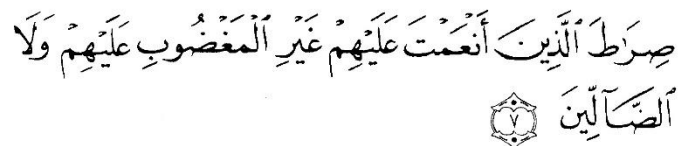 صِرَٰطَ ٱلَّذِينَ أَنْعَمْتَ عَلَيْهِمْ غَيْرِ ٱلْمَغْضُوبِ عَلَيْهِمْ وَلَا
ٱلضَّآلِّينَ ٧